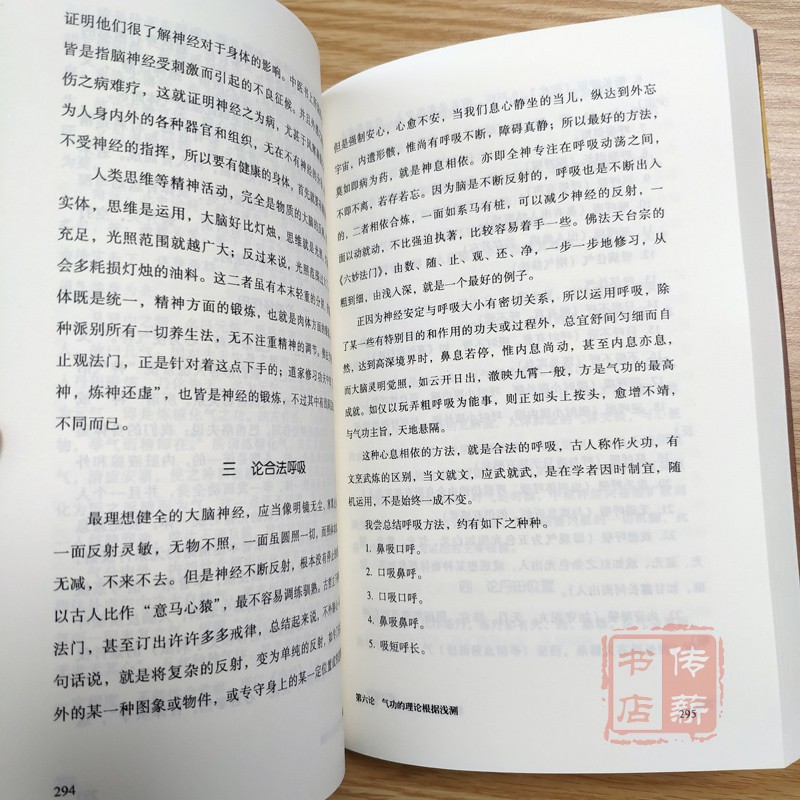 证明他们很了解神经对于身体的影响。中医书上
皆是指脑神经受刺激而引起的不良征候。并且
伤之病难疗，这就证明神经之为病，尤甚于风
为人身内外的各种器官和组织，无在不有神经
不受神经的指挥，所以要有健康的身体，首先
人类思维等精神活动，完全是物质的大脑的
实体，思维是运用，大脑好比灯烛，思维就是
充足，光照范围就越广大；反过来说，光照范围
会多耗损灯烛的油料。这二者虽有本末轻重的分
体既是统一，精神方面的锻炼，也就是肉体方面的
种派别所有一切养生法，无不注重精神的调节。
止观法门，正是针对着这点下手的；道家修习功夫
神，炼神还虚”，也皆是神经的锻炼，不过其中有
不同而已。
三 论合法呼吸
最理想健全的大脑神经，应当像明镜无尘，
一面反射灵敏，无物不照，一面虽圆照一切，而
无减，不来不去。但是神经不断反射，根本没有停
以古人比作“意马心猿”，最不容易调练驯熟。古
法门，甚至订出许许多多戒律，总结起来说，不外
句话说，就是将复杂的反射，变为单纯的反射，
外的某一种图象或物件，或专守身上的某一定位
294
但是强制安心，心愈不安，当我们息心静坐的当儿，纵达到外忘
宇宙，内遗形骸，惟尚有呼吸不断，障碍真静；所以最好的方法，
莫如即病为药，就是神息相依。亦即全神专注在呼吸动荡之间，
不即不离，若存若忘。因为脑是不断反射的，呼吸也是不断出入
的，二者相依合炼，一面如系马有桩，可以减少神经的反射，一
面以动就动，不比强迫执著，比较容易着手一些。佛法天台宗的
《六妙法门》，由数、随、止、观、还、净，一步一步地修习，从
粗到细，由浅入深，就是一个最好的例子。
正因为神经安定与呼吸大小有密切关系，所以运用呼吸，除
了某一些有特别目的和作用的功夫或过程外，总宜舒间匀细而自
然，达到高深境界时，鼻息若停，惟内息尚动，甚至内息亦息，
而大脑灵明觉照，如云开日出，澈映九霄一般，方是气功的最高
成就。如仅以玩弄粗呼吸为能事，则正如头上按头，愈增不靖，
与气功主旨，天地悬隔。
这种心息相依的方法，就是合法的呼吸，古人称作火功，有
文烹武炼的区别，当文就文，应武就武，是在学者因时制宜，随
机运用，不是始终一成不变。
我会总结呼吸方法，约有如下之种种。
1. 鼻吸口呼。
2. 口吸鼻呼。
3. 口吸口呼。
4. 鼻吸鼻呼。
5. 吸短呼长。
第六论 气功的理论根据浅测
295
传薪
书店